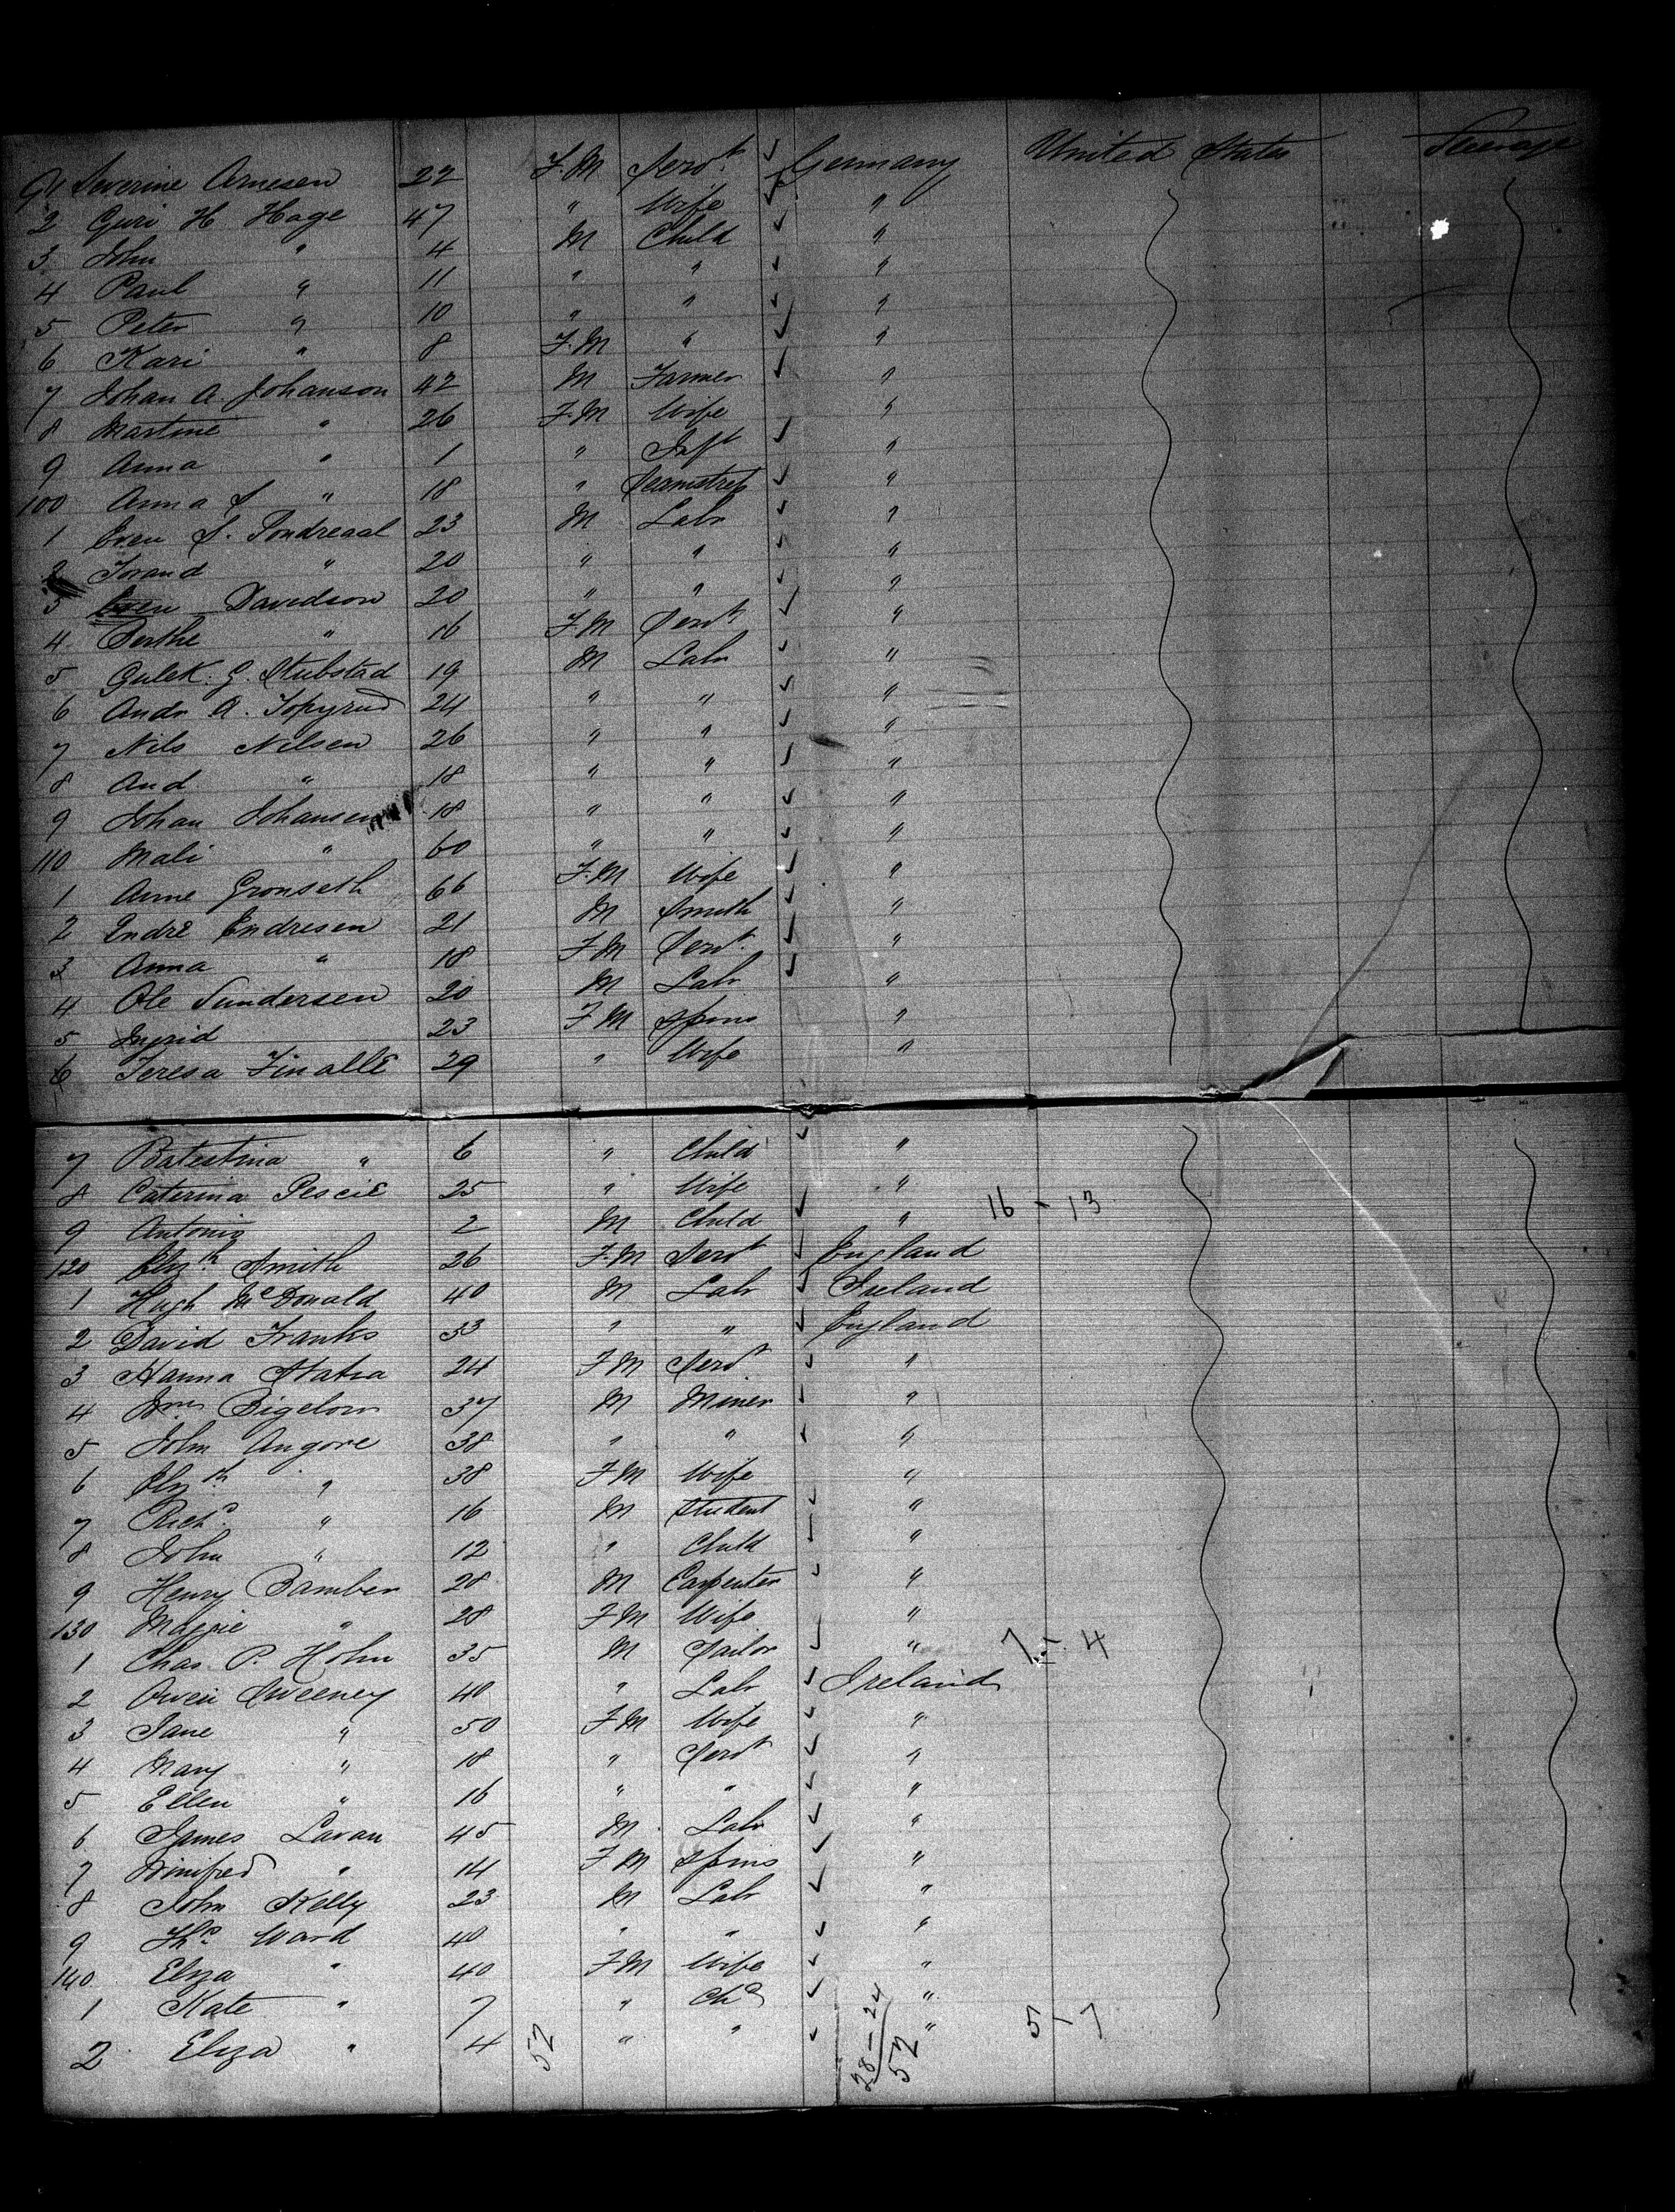 91 Severine Arnesen 22 F.M Servt Germany United States Steerage
2 Guri H Hage 47 " Wife "
3 John " 4 M Child "
4 Paul " 11 " " "
5 Peter " 10 " " "
6 Kari " 8 F.M " "
7 Johan A. Johanson 42 M Farmer "
8 Martine " 26 F.M Wife "
9 Anna " 1 " Inft "
100 Anna S " 18 " Seamstress "
1 Even S. Tondreaal 23 M Labr "
2 Torand " 20 " " "
3 Even Davidson 20 " " "
4 Berthe " 16 F.M Servt "
5 Gulek. G. Stubstad 19 M Labr "
6 Andr A. Topyrud 24 " " "
7 Nils Nilsen 26 " " "
8 And " 18 " " "
9 Johan Johansen 18 " " "
110 Mali " 60 " " "
1 Anne Gronseth 66 F.M Wife "
2 Endre Endresen 21 M Smith "
3 Anna " 18 F.M Servt "
4 Ole Sundersen 20 M Labr "
5 Ingrid 23 F M Spins "
6 Teresa Finalle 29 " Wife "
7 Batestina " 6 " Child "
8 Caterina Pescie 25 " Wife "
9 Antonio 2 M Child " 16 - 13
120 Elizth Smith 26 F.M Servt England
1 Hugh McDonald 40 M Labr Ireland
2 David Franks 33 " " England
3 Hanna Statra 24 F M Servt "
4 Wm Bigelow 37 M Miner "
5 John Angove 38 " " "
6 Elizth " 38 F M Wife "
7 Richd " 16 M Student "
8 John " 12 " Child "
9 Henry Bamber 28 M Carpenter "
130 Maggie " 28 F M Wife "
1 Chas. P. Holm 35 M Sailor " 7 - 4
2 Owen Sweeney 40 " Labr Ireland
3 Jane " 50 F M Wife "
4 Mary " 18 " Servt "
5 Ellen " 16 " " "
6 James Lavan 45 M Labr "
7 Winifred " 14 F M Spins "
8 John Kelly 23 M Labr "
9 Ths Ward 40 " " "
140 Eliza " 40 F M Wife "
1 Kate " 7 " Chd "
2 Eliza " 4 52 " " " 5 - 7
28 - 24
52